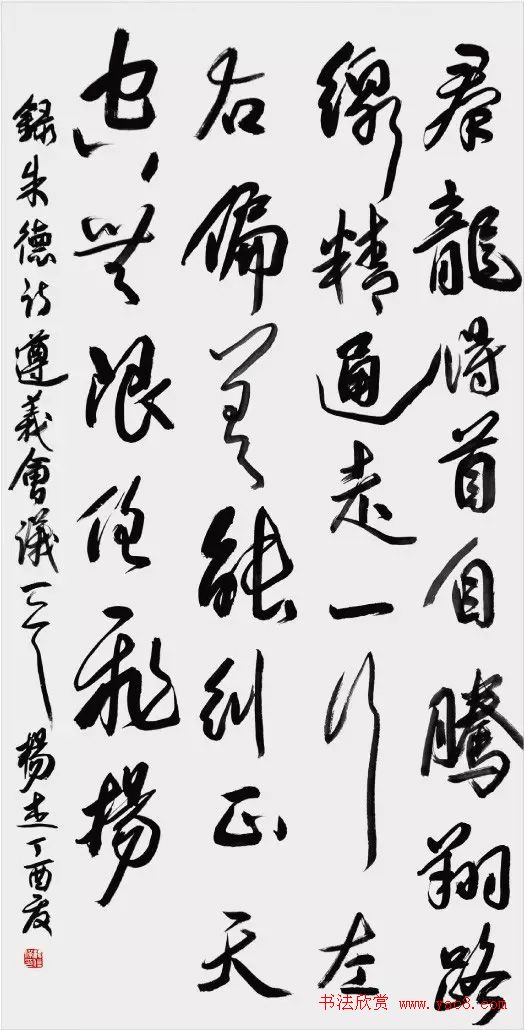 羣龍得首自騰翔路
線精通走一行左
右偏差能糾正天
空無限任飛揚
錄朱德诗遵義會議一首 楊 丁酉夏
书法欣赏 www.yac8.com